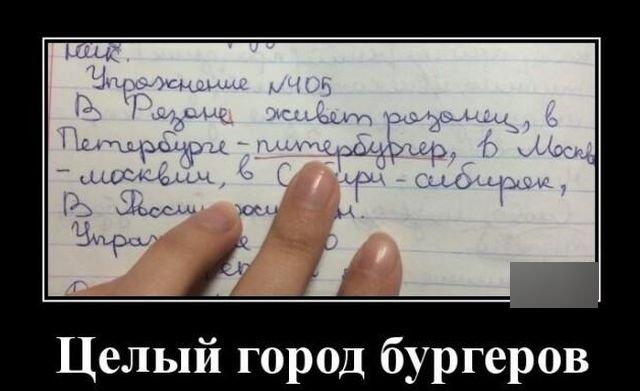 ник.
Упражнение №405
В Рязане живёт рязанец, в
Петербурге - питербургер, в Москв
- москвич, в С ири - сибиряк,
В
Упра
Целый город бургеров